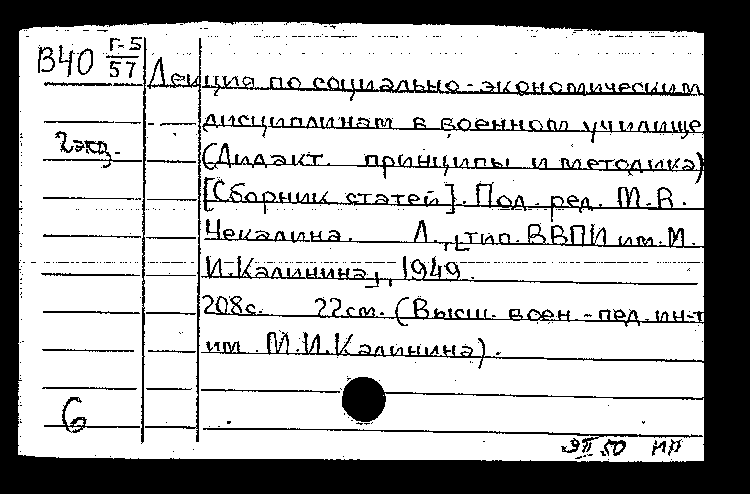 В40 Г-5/57
Лекция по социально-экономическим
дисциплинам в военном училище
2экз.
(Дидакт. принципы и методика)
[Сборник статей]. Под. ред. М.В.
Чекалина. Л., [тип. ВВПИ им. М.
И. Калинина], 1949.
208с. 22см. (Высш. воен.-пед. ин-т
им. М.И. Калинина).
6
50 ИП